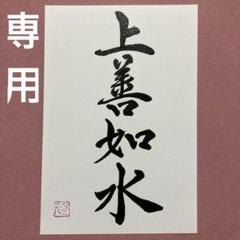 専用
上善如水